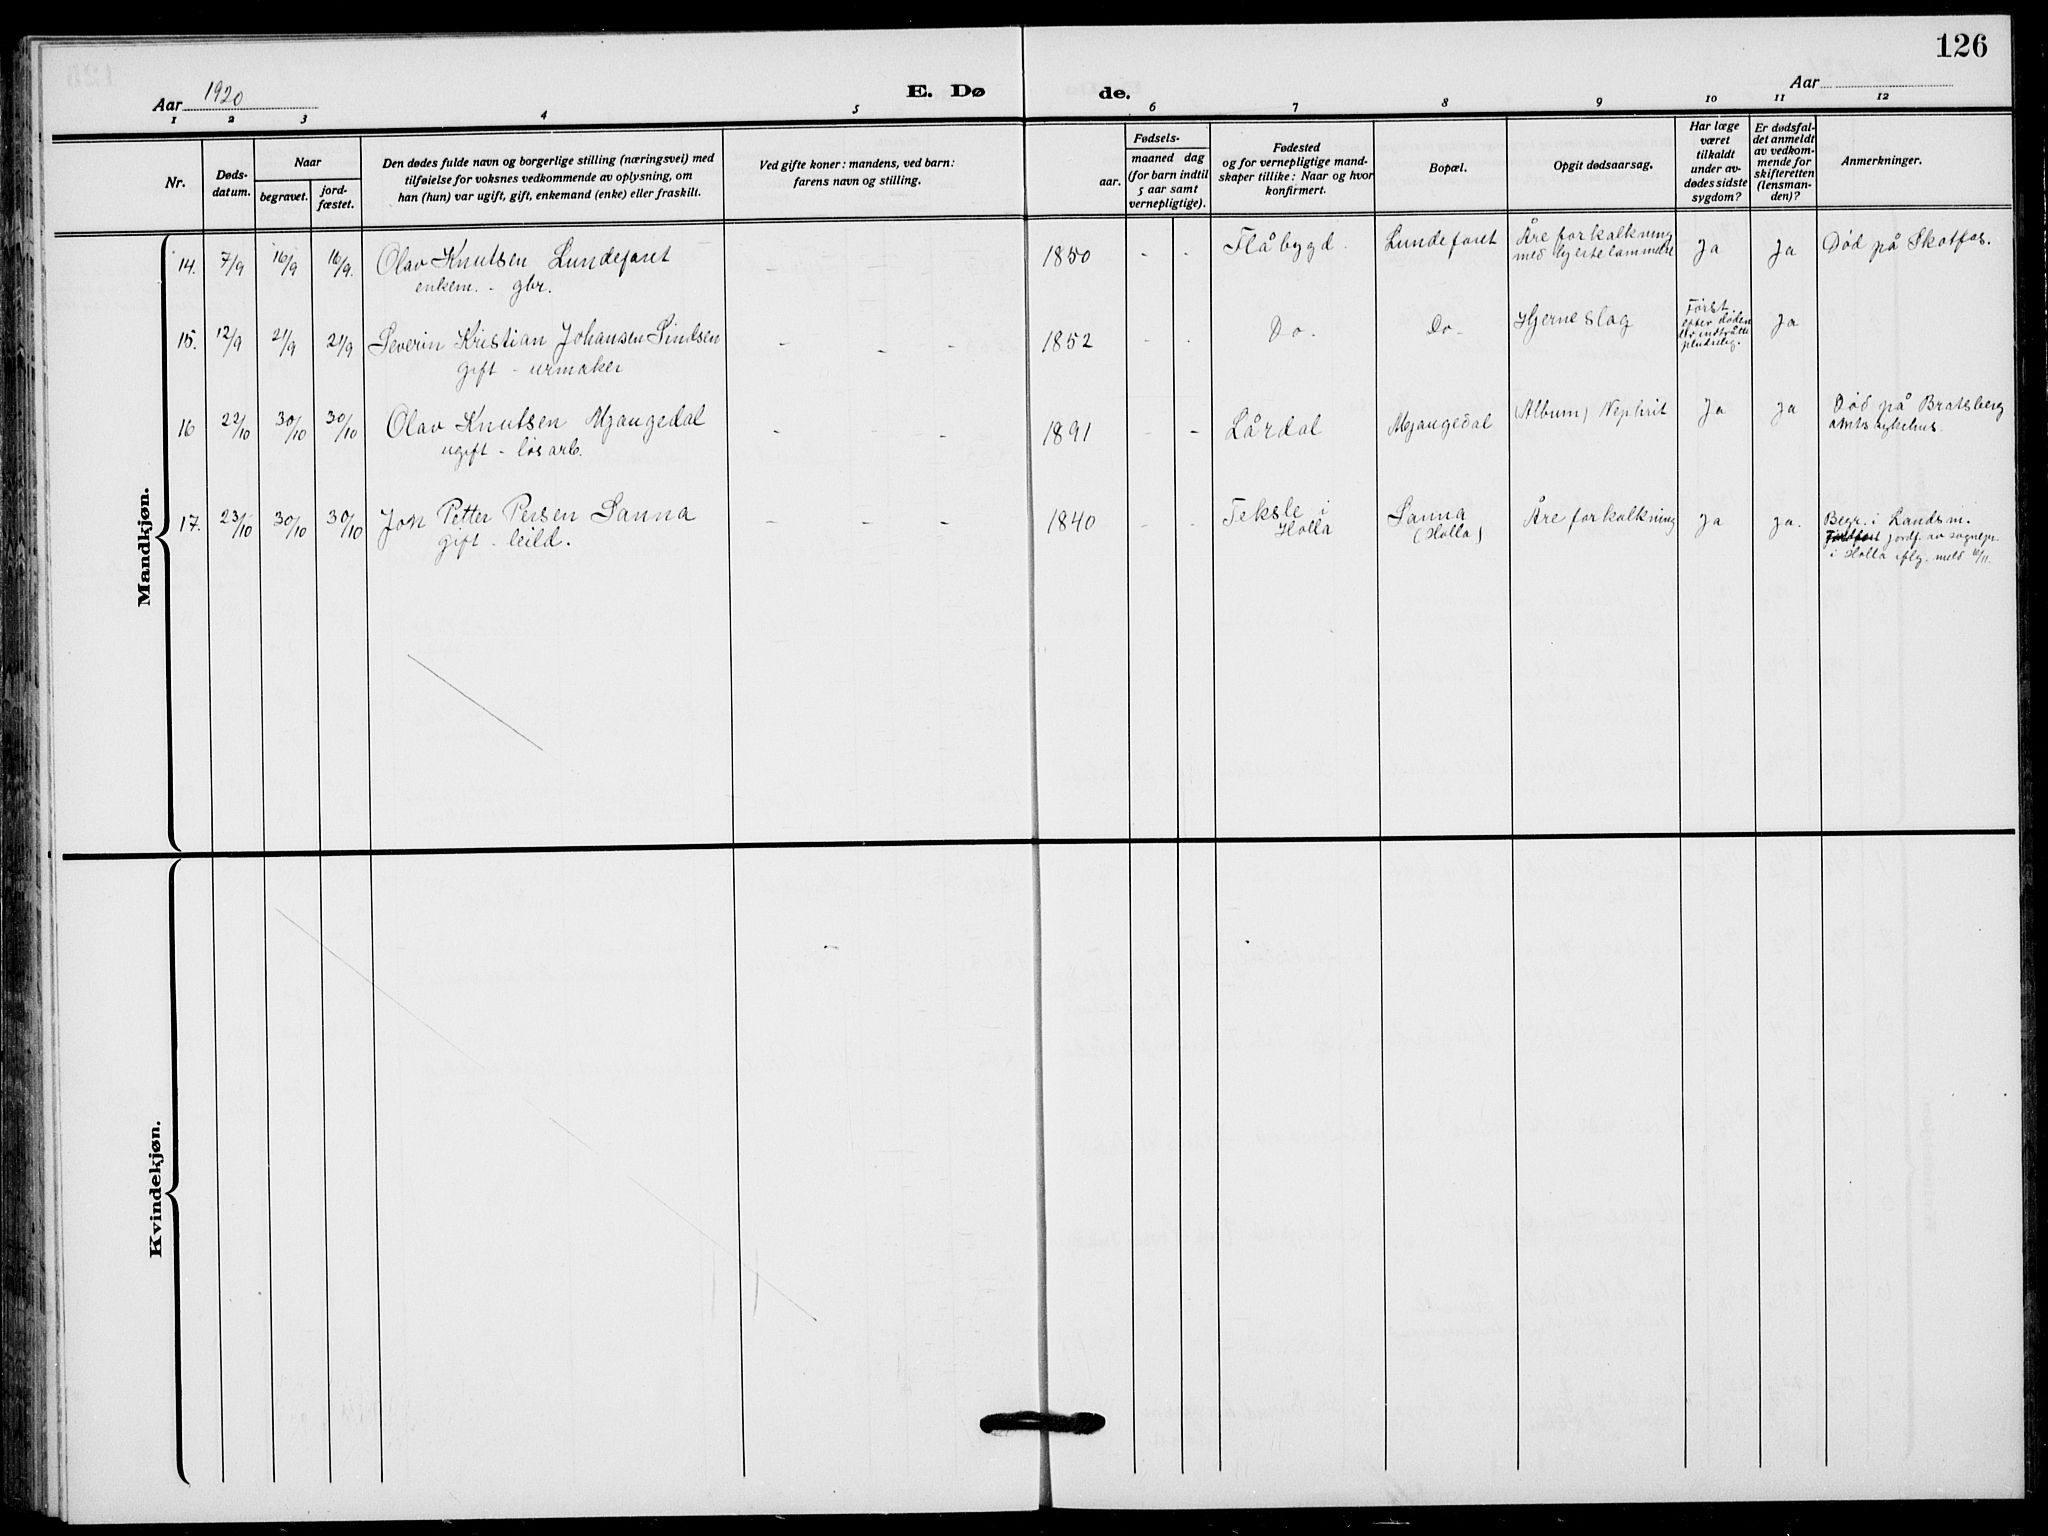 126
Aar 1920
E. Dø
de.
Aar
1 2 3 4 5 6 7 8 9 10 11 12
Nr.
Døds-
datum.
Naar
begravet.
jord-
fæstet.
Den dødes fulde navn og borgerlige stilling (næringsvei) med
tilføielse for voksnes vedkommende av oplysning, om
han (hun) var ugift, gift, enkemand (enke) eller fraskilt.
Ved gifte koner: mandens, ved barn:
farens navn og stilling.
Fødsels-
aar.
maaned dag
(for barn indtil
5 aar samt
vernepligtige).
Fødested
og for vernepligtige mand-
skaper tillike: Naar og hvor
konfirmert.
Bopæl.
Opgit dødsaarsag.
Har læge
været
tilkaldt
under av-
dødes sidste
sygdom?
Er dødsfal-
det anmeldt
av vedkom-
mende for
skifteretten
(lensman-
den)?
Anmerkninger.
Mandkjøn.
14. 7/9 16/9 16/9. Olav Knutsen Lundefaret - - - 1850 - - Flåbygd. Lundefaret Åreforkalkning Ja Ja Død på Skotfos.
enkem. - gbr. med hjertelammelse
15. 12/9 21/9 21/9 Severin Kristian Johansen Sindsen - - - 1852 - - Do. Do - Hjerneslag Først Ja
gift - urmaker
efter døden
da indtråtte
pludselig.
16 22/10 30/10 30/10 Olav Knutsen Mjaugedal - - - 1891 - - Lårdal Mjaugedal (Album) Nephrit Ja Ja Død på Bratsberg
ugift - løsarb. amts sykehus.
17. 23/10 30/10 30/10 Jon Petter Persen Sanna - - - 1840 - - Teksle i Sanna Åreforkalkning Ja Ja. Begr. i Landsm.
gift - leild. Holla (Holla) jordf. av sognepr.
i Holla iflg. meld 10/11.
Kvindekjøn.